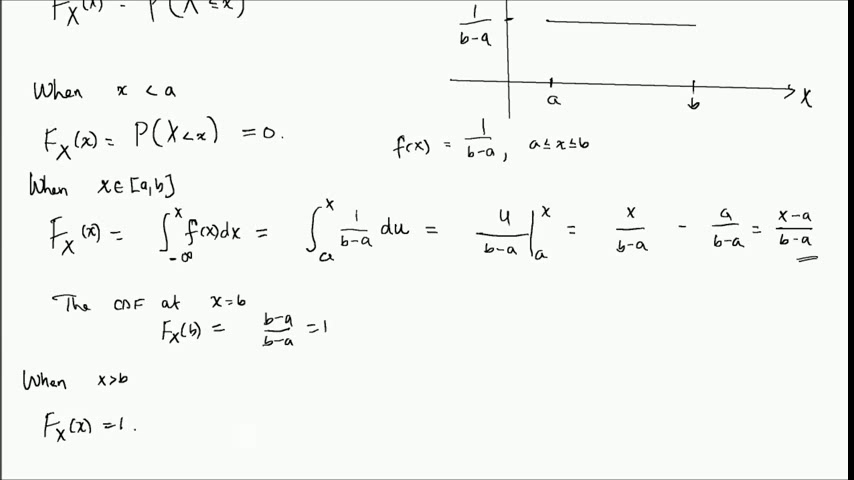 F_X(x) = P(X ≤ x)
1/(b-a)
a b X
When x < a
F_X(x) = P(X<x) = 0.
f(x) = 1/(b-a), a≤x≤b
When x∈[a,b]
F_X(x) = ∫_{-∞}^{x} f(x)dx = ∫_{a}^{x} 1/(b-a) du = u/(b-a) |_{a}^{x} = x/(b-a) - a/(b-a) = (x-a)/(b-a)
The CDF at x=b
F_X(b) = (b-a)/(b-a) = 1
When x>b
F_X(x) = 1.